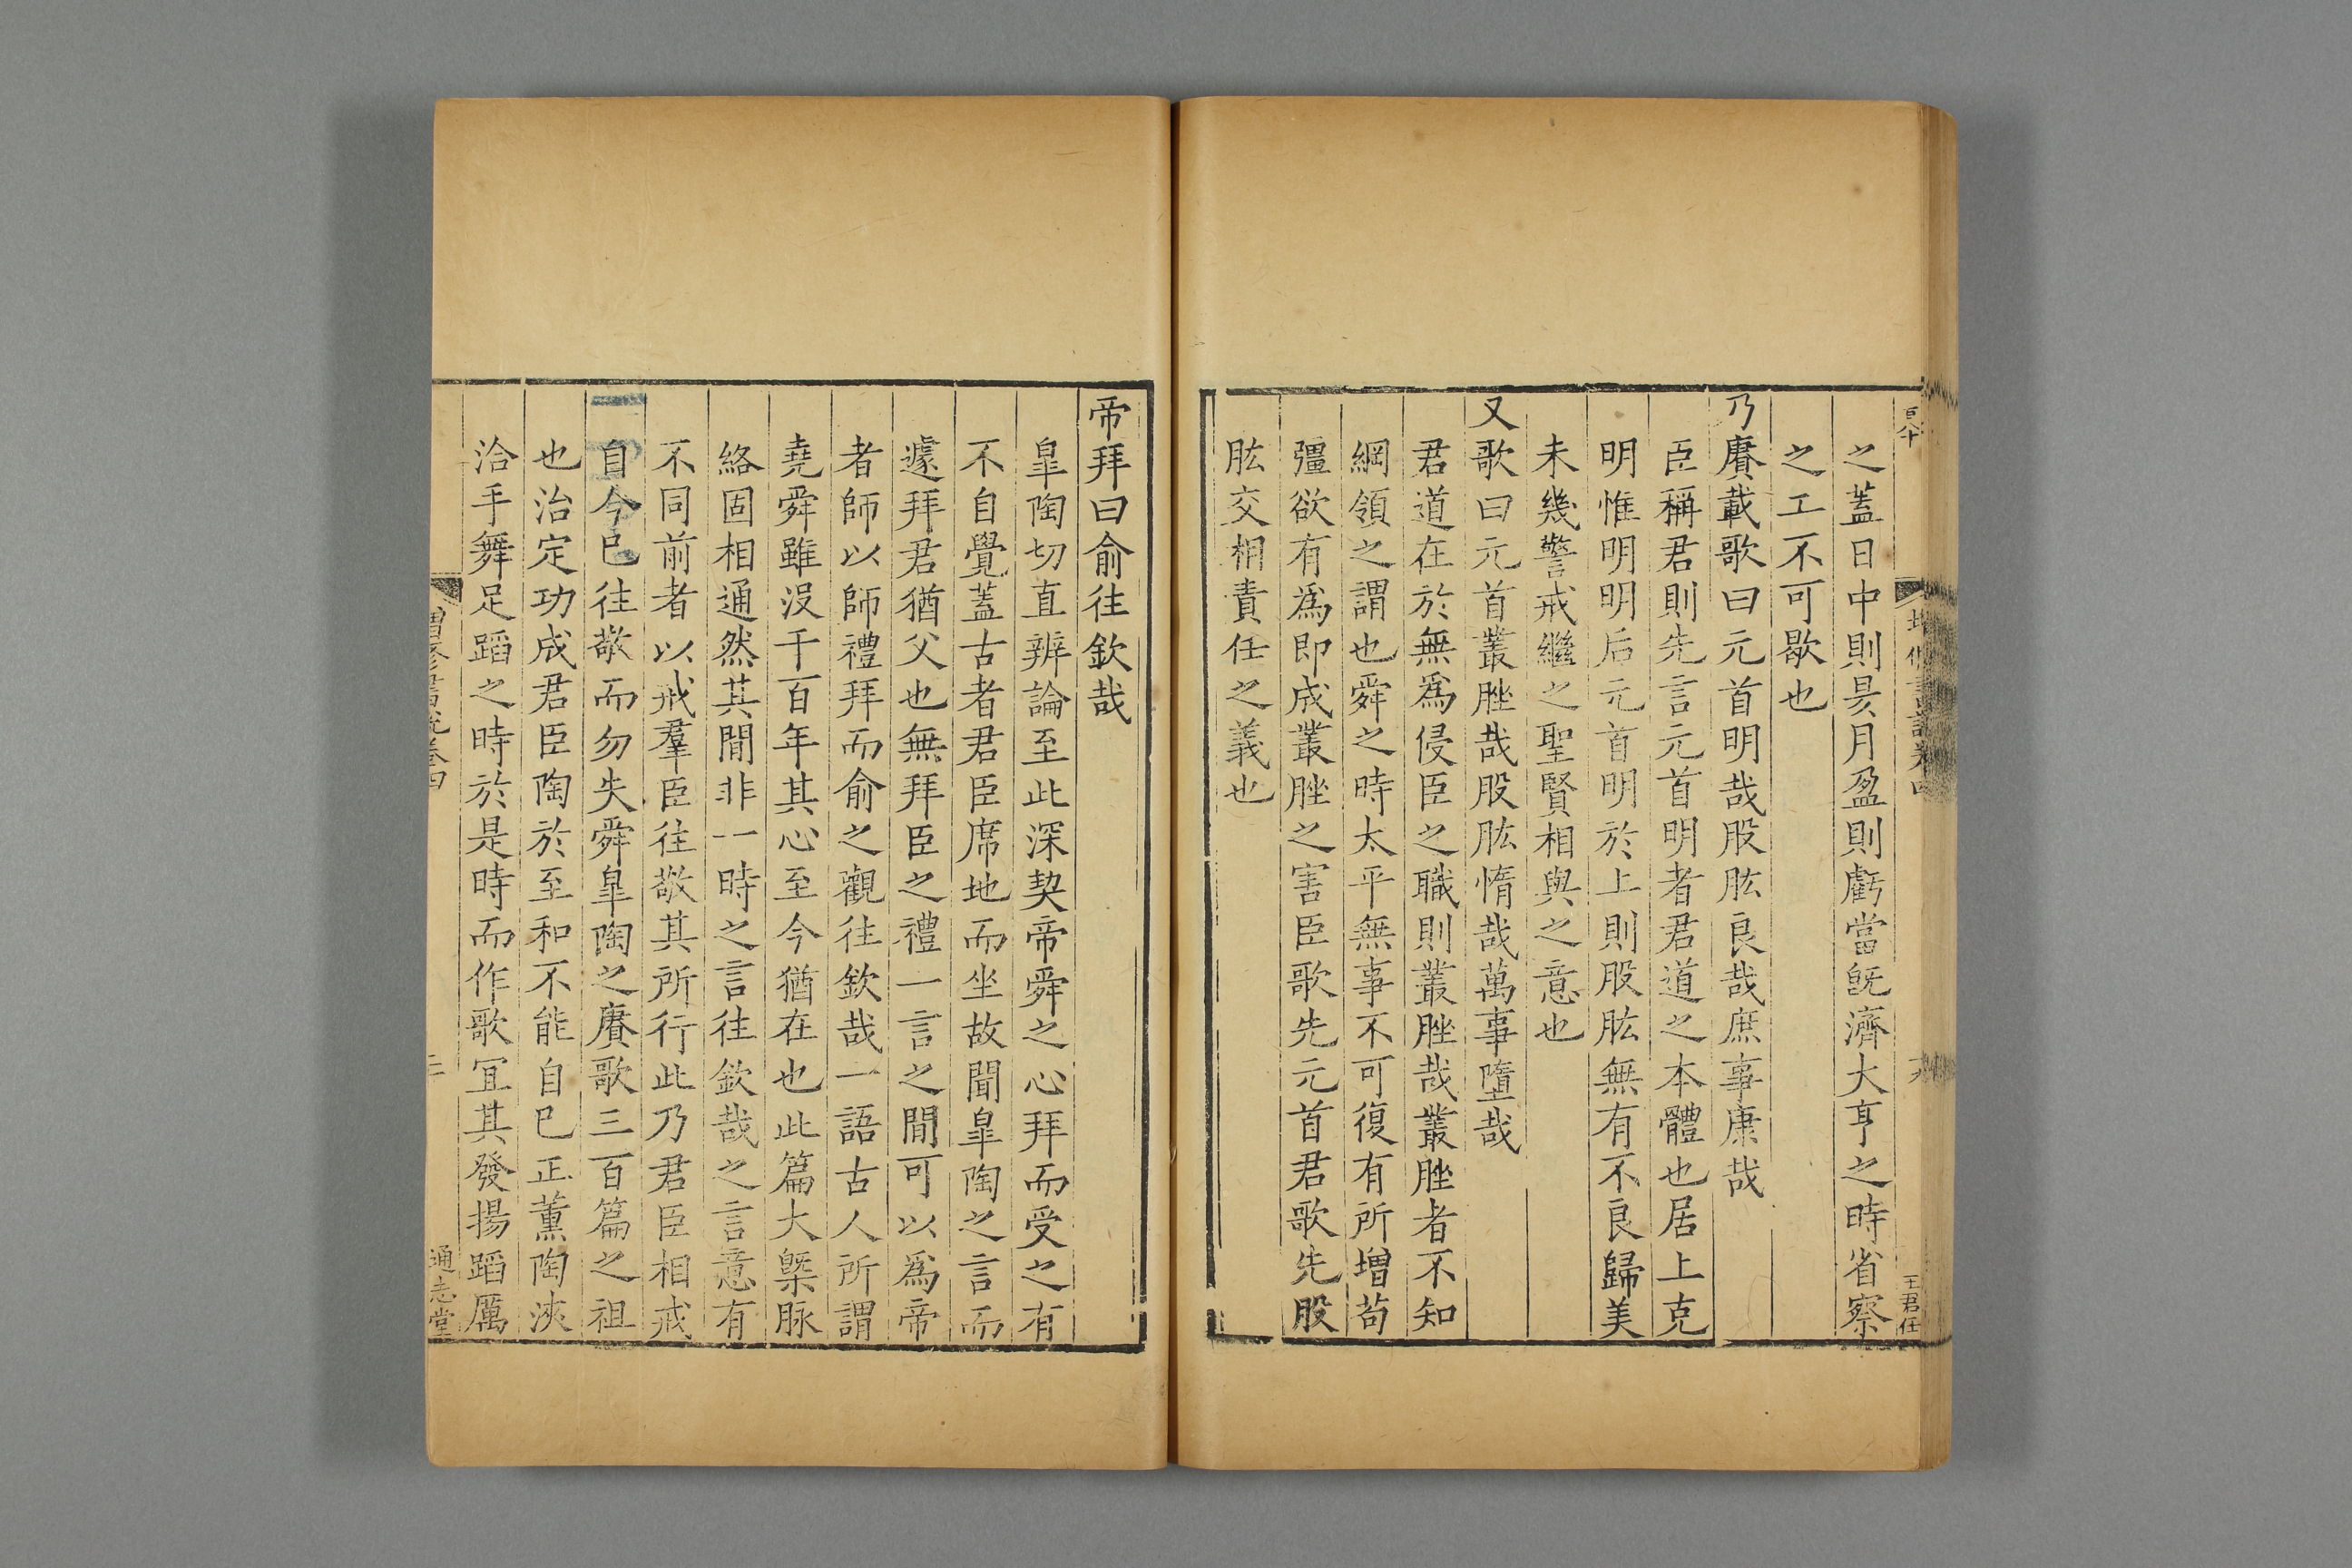 之蓋日中則昃月盈則虧當旣濟大亨之時省察
之工不可歇也
乃賡載歌曰元首明哉股肱良哉庶事康哉
臣稱君則先言元首明者君道之本體也居上克
明惟明明后元首明於上則股肱無有不良歸美
未幾警戒繼之聖賢相與之意也
又歌曰元首叢脞哉股肱惰哉萬事墮哉
君道在於無爲侵臣之職則叢脞哉叢脞者不知
綱領之謂也舜之時太平無事不可復有所增苟
彊欲有爲即成叢脞之害臣歌先元首君歌先股
肱交相責任之義也
王君任
帝拜曰俞往欽哉
臯陶切直辨論至此深契帝舜之心拜而受之有
不自覺蓋古者君臣席地而坐故聞臯陶之言而
遽拜君猶父也無拜臣之禮一言之間可以爲帝
者師以師禮拜而俞之觀往欽哉一語古人所謂
堯舜雖沒千百年其心至今猶在也此篇大槩脉
絡固相通然其閒非一時之言往欽哉之言意有
不同前者以戒羣臣往敬其所行此乃君臣相戒
自今巳往敬而勿失舜臯陶之賡歌三百篇之祖
也治定功成君臣陶於至和不能自巳正薰陶浹
洽手舞足蹈之時於是時而作歌冝其發揚蹈厲
通志堂